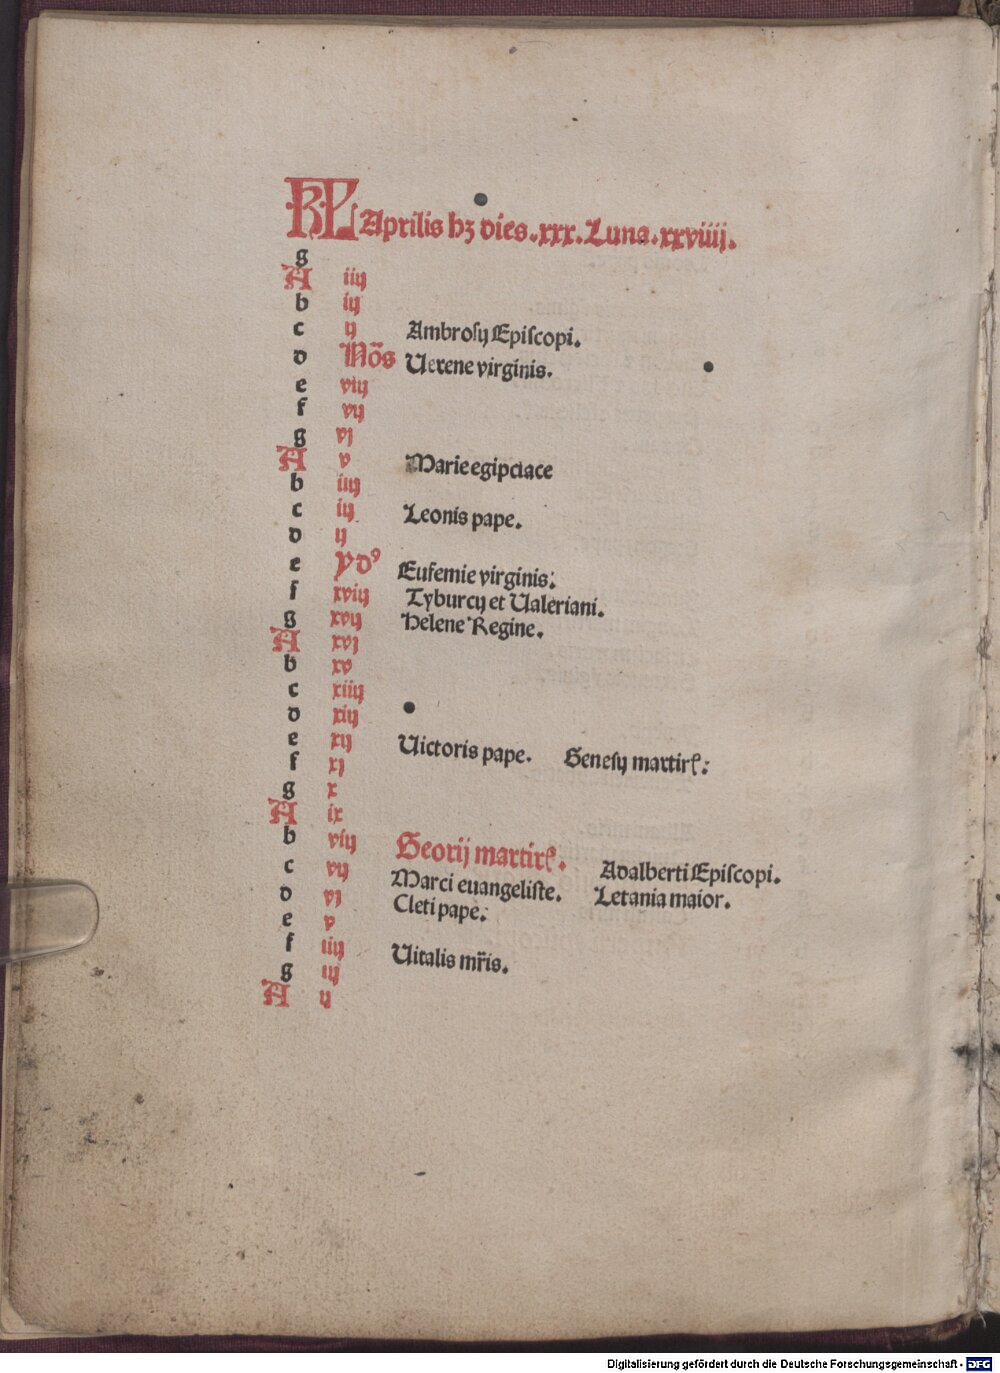 KL Aprilis hꝫ dies .xxx. Luna .xxviiij.
g
A iiij
b iij
c ij Ambrosij Episcopi.
d Nōs Uerene virginis.
e viij
f vij
g vj
A v Marie egipciace
b iiij
c iij Leonis pape.
d ij
e ydꝰ Eufemie virginis:
f xviij Tyburcij et Ualeriani.
g xvij Helene Regine.
A xvj
b xv
c xiiij
d xiij
e xij Uictoris pape. Genesij martirꝭ:
f xj
g x
A ix
b viij Georij martirꝭ. Adalberti Episcopi.
c vij Marci euangeliste. Letania maior.
d vj Cleti pape:
e v
f iiij Uitalis mr̄is.
g iij
A ij
Digitalisierung gefördert durch die Deutsche Forschungsgemeinschaft - DFG